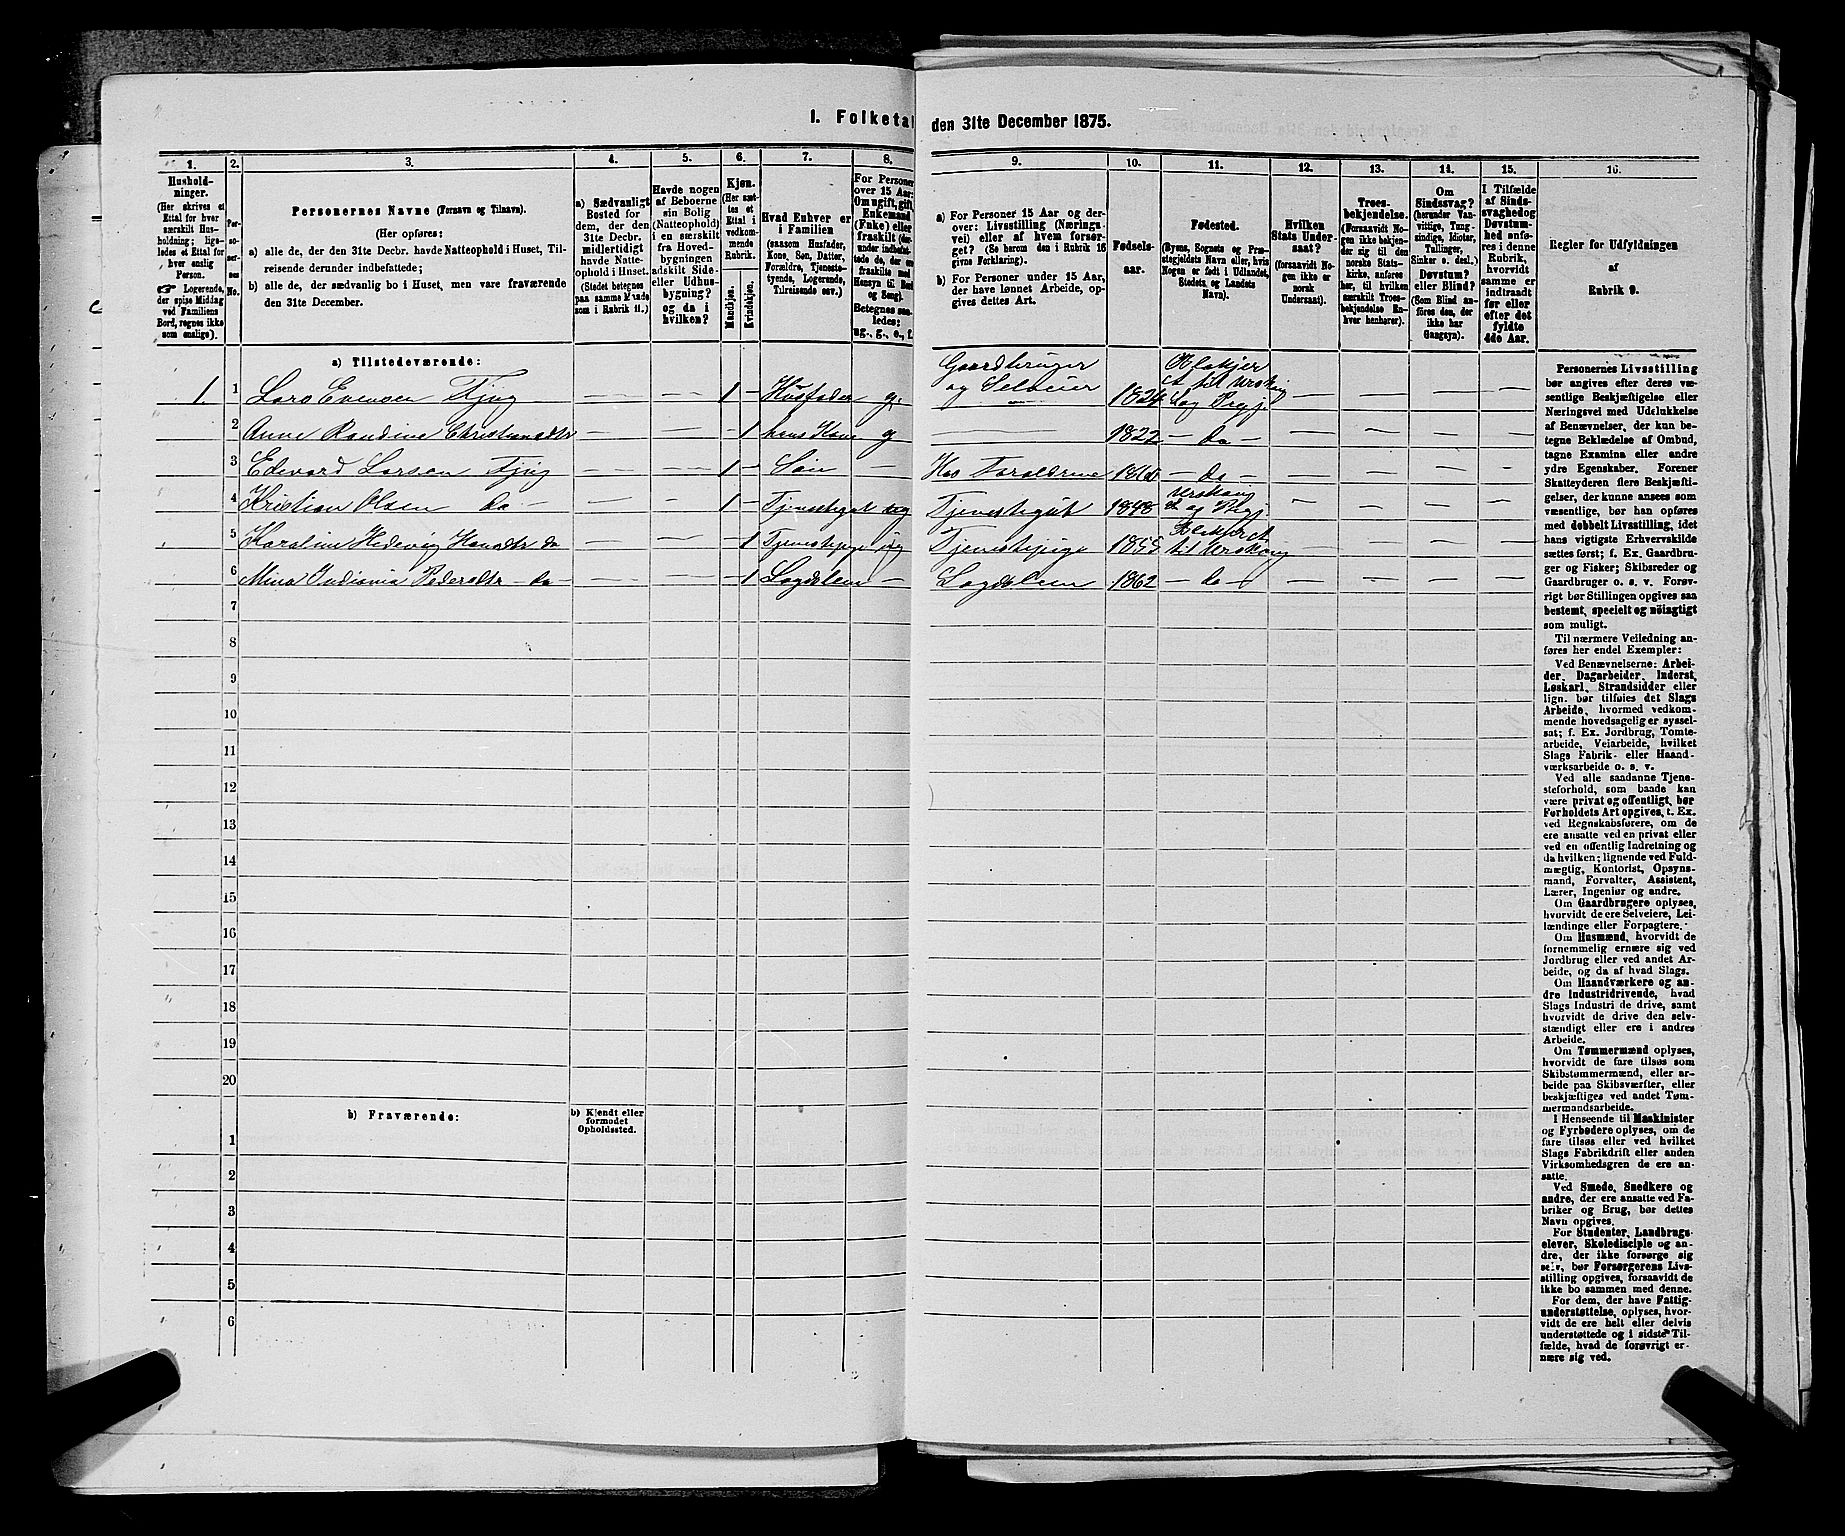 I. Folketal den 31te December 1875.
1.
Hushold-
ninger.
(Her skrives et
Ettal for hver
særskilt Hus-
holdning; lige-
ledes et Ettal for
hver enslig
Person.
Logerende,
der spise Middag
ved Familiens
Bord, regnes ikke
som enslige).
2.
Per-
so-
ner-
nes
No.
3.
Personernes Navne (Fornavn og Tilnavn).
(Her opføres:
a) alle de, der den 31te Decbr. havde Natteophold i Huset, Til-
reisende derunder indbefattede;
b) alle de, der sædvanlig bo i Huset, men vare fraværende
den 31te December.
4.
a) Sædvanligt
Bosted for
dem, der den
31te Decbr.
midlertidigt
havde Natte-
ophold i Huset.
(Stedet betegnes
paa samme Maade
som i Rubrik 11.)
5.
Havde nogen
af Beboerne
sin Bolig
(Natteophold)
i en særskilt
fra Hoved-
bygningen
adskilt Side-
eller Udhus-
bygning?
og da i
hvilken?
6.
Kjøn.
(Her sæt-
tes et
Ettal i
vedkom-
mende
Rubrik.
Mandkjøn.
Kvindekjøn.
7.
Hvad Enhver er
i Familien
(saasom Husfader,
Kone, Søn, Datter,
Forældre, Tjeneste-
tyende, Logerende,
Tilreisende osv.)
8.
For Personer
over 15 Aar:
Om ugift, gift,
Enkemand
(Enke) eller
fraskilt
Betegnes saa-
ledes:
ug., g., e., f.
9.
a) For Personer 15 Aar og der-
over: Livsstilling (Nærings-
vei) eller af hvem forsør-
get? (Se herom den i Rubrik 16
givne Forklaring).
b) For Personer under 15 Aar,
der have lønnet Arbeide, op-
gives dettes Art.
10.
Fødsels-
aar.
11.
Fødested.
(Byens, Sognets og Præ-
stegjeldets Navn eller, hvis
Nogen er født i Udlandet,
Stedets og Landets
Navn).
12.
Hvilken
Stats Under-
saat?
(forsaavidt No-
gen ikke er
norsk
Undersaat).
13.
Troes-
bekjendelse.
(Forsaavidt No-
gen ikke bekjen-
der sig til den
norske Stats-
kirke, anføres
her, til hvilken
særskilt Troes-
bekjendelse En-
hver henhører).
14.
Om
Sindssvag?
(herunder Van-
vittige, Tung-
sindige, Idioter,
Tullinger,
Sinker o. desl.)
Døvstum?
eller Blind?
(Som Blind an-
føres den, der
ikke har
Gangsyn).
15.
I Tilfælde
af Sinds-
svaghed og
Døvstum-
hed anfø-
res i denne
Rubrik,
hvorvidt
samme er
indtraadt
før eller
efter det
fyldte
4de Aar.
16.
Regler for Udfyldningen
af
Rubrik 9.
a) Tilstedeværende:
1. 1 Lars Evensen Fjug — — 1 — Husfader g. Gaardbruger og Selveier 1824 Blakjer A. til Urskoug Sog Prgj. — — — —
2 Anne Randine Christiansdtr — — — 1 hans Kone g — 1822 — do — — — — —
3 Edvard Larsen Fjug — — 1 — Søn — Hos Forældrene 1860 — do — — — — —
4 Kristian Olsen do — — — 1 — Tjenestegut ug Tjenestegut 1848 Urskoug S og Prgj — — — —
5 Karoline Hedevig Hansdtr do — — — 1 Tjenestepige ug Tjenestepige Blakjer A. til Urskoug — — — —
6 Mina Indiania Pedersdtr — do — — — — 1 Lægdslem — Lægdslem 1862 — do — — — — —
7
8
9
10
11
12
13
14
15
16
17
18
19
20
b) Fraværende:
b) Kjendt eller
formodet
Opholdssted.
1
2
3
4
5
6
Personernes Livsstilling
bør angives efter deres væ-
sentlige Beskjæftigelse eller
Næringsvei med Udelukkelse
af Benævnelser, der kun be-
tegne Beklædelse af Ombud,
tagne Examina eller andre
ydre Egenskaber. Forener
Skatteyderen flere Beskjæfti-
gelser, der kunne ansees som
væsentlige, bør han opføres
med dobbelt Livsstilling, idet
hans vigtigste Erhvervskilde
sættes først; f. Ex. Gaardbru-
ger og Fisker; Skibsreder og
Gaardbruger o. s. v. Forøv-
rigt bør Stillingen opgives saa
bestemt, specielt og nöiagtigt
som muligt.
Til nærmere Veiledning an-
føres her endel Exempler:
Ved Benævnelserne: Arbei-
der, Dagarbeider, Inderst,
Løskarl, Strandsidder eller
lign. bør tilføies det Slags
Arbeide, hvormed vedkom-
mende hovedsagelig er syssel-
sat; f. Ex. Jordbrug, Tomte-
arbeide, Veiarbeide, hvilket
Slags Fabrik- eller Haand-
værksarbeide o. s. v.
Ved alle saadanne Tjene-
steforhold, som baade kan
være privat og offentligt, bør
Forholdets Art opgives, t. Ex.
ved Regnskabsførere, om de
ere ansatte ved en privat eller
ved en offentlig Indretning og
da hvilken; lignende ved Fuld-
mægtig, Kontorist, Opsyns-
mand, Forvalter, Assistent,
Lærer, Ingeniør og andre.
Om Gaardbrugere oplyses,
hvorvidt de ere Selveiere, Lei-
lændinge eller Forpagtere.
Om Husmænd, hvorvidt de
fornemmelig ernære sig ved
Jordbrug eller ved andet Ar-
beide, og da af hvad Slags.
Om Haandværkere og an-
dre Industridrivende, hvad
Slags Industri de drive, samt
hvorvidt de drive den selv-
stændigt eller ere i andres
Arbeide.
Om Tømmermænd oplyses,
hvorvidt de fare tilsøs som
Skibstømmermænd, eller ar-
beide paa Skibsværfter, eller
beskjæftiges ved andet Tøm-
mermandsarbeide.
I Henseende til Maskinister
og Fyrbødere oplyses, om de
fare tilsøs eller ved hvilket
Slags Fabrikdrift eller anden
Virksomhedsgren de ere an-
satte.
Ved Smede, Snedkere og
andre, der ere ansatte ved Fa-
briker og Brug, bør dettes
Navn opgives.
For Studenter, Landbrugs-
elever, Skoledisciple og an-
dre, der ikke forsørge sig
selv, bør Forsørgerens Livs-
stilling opgives, forsaavidt de
ikke bo sammen med denne.
For dem, der have Fattig-
understøttelse, oplyses, hvor-
vidt de ere helt eller delvis
understøttede og i sidste Til-
fælde, hvad de forøvrigt er-
nære sig ved.